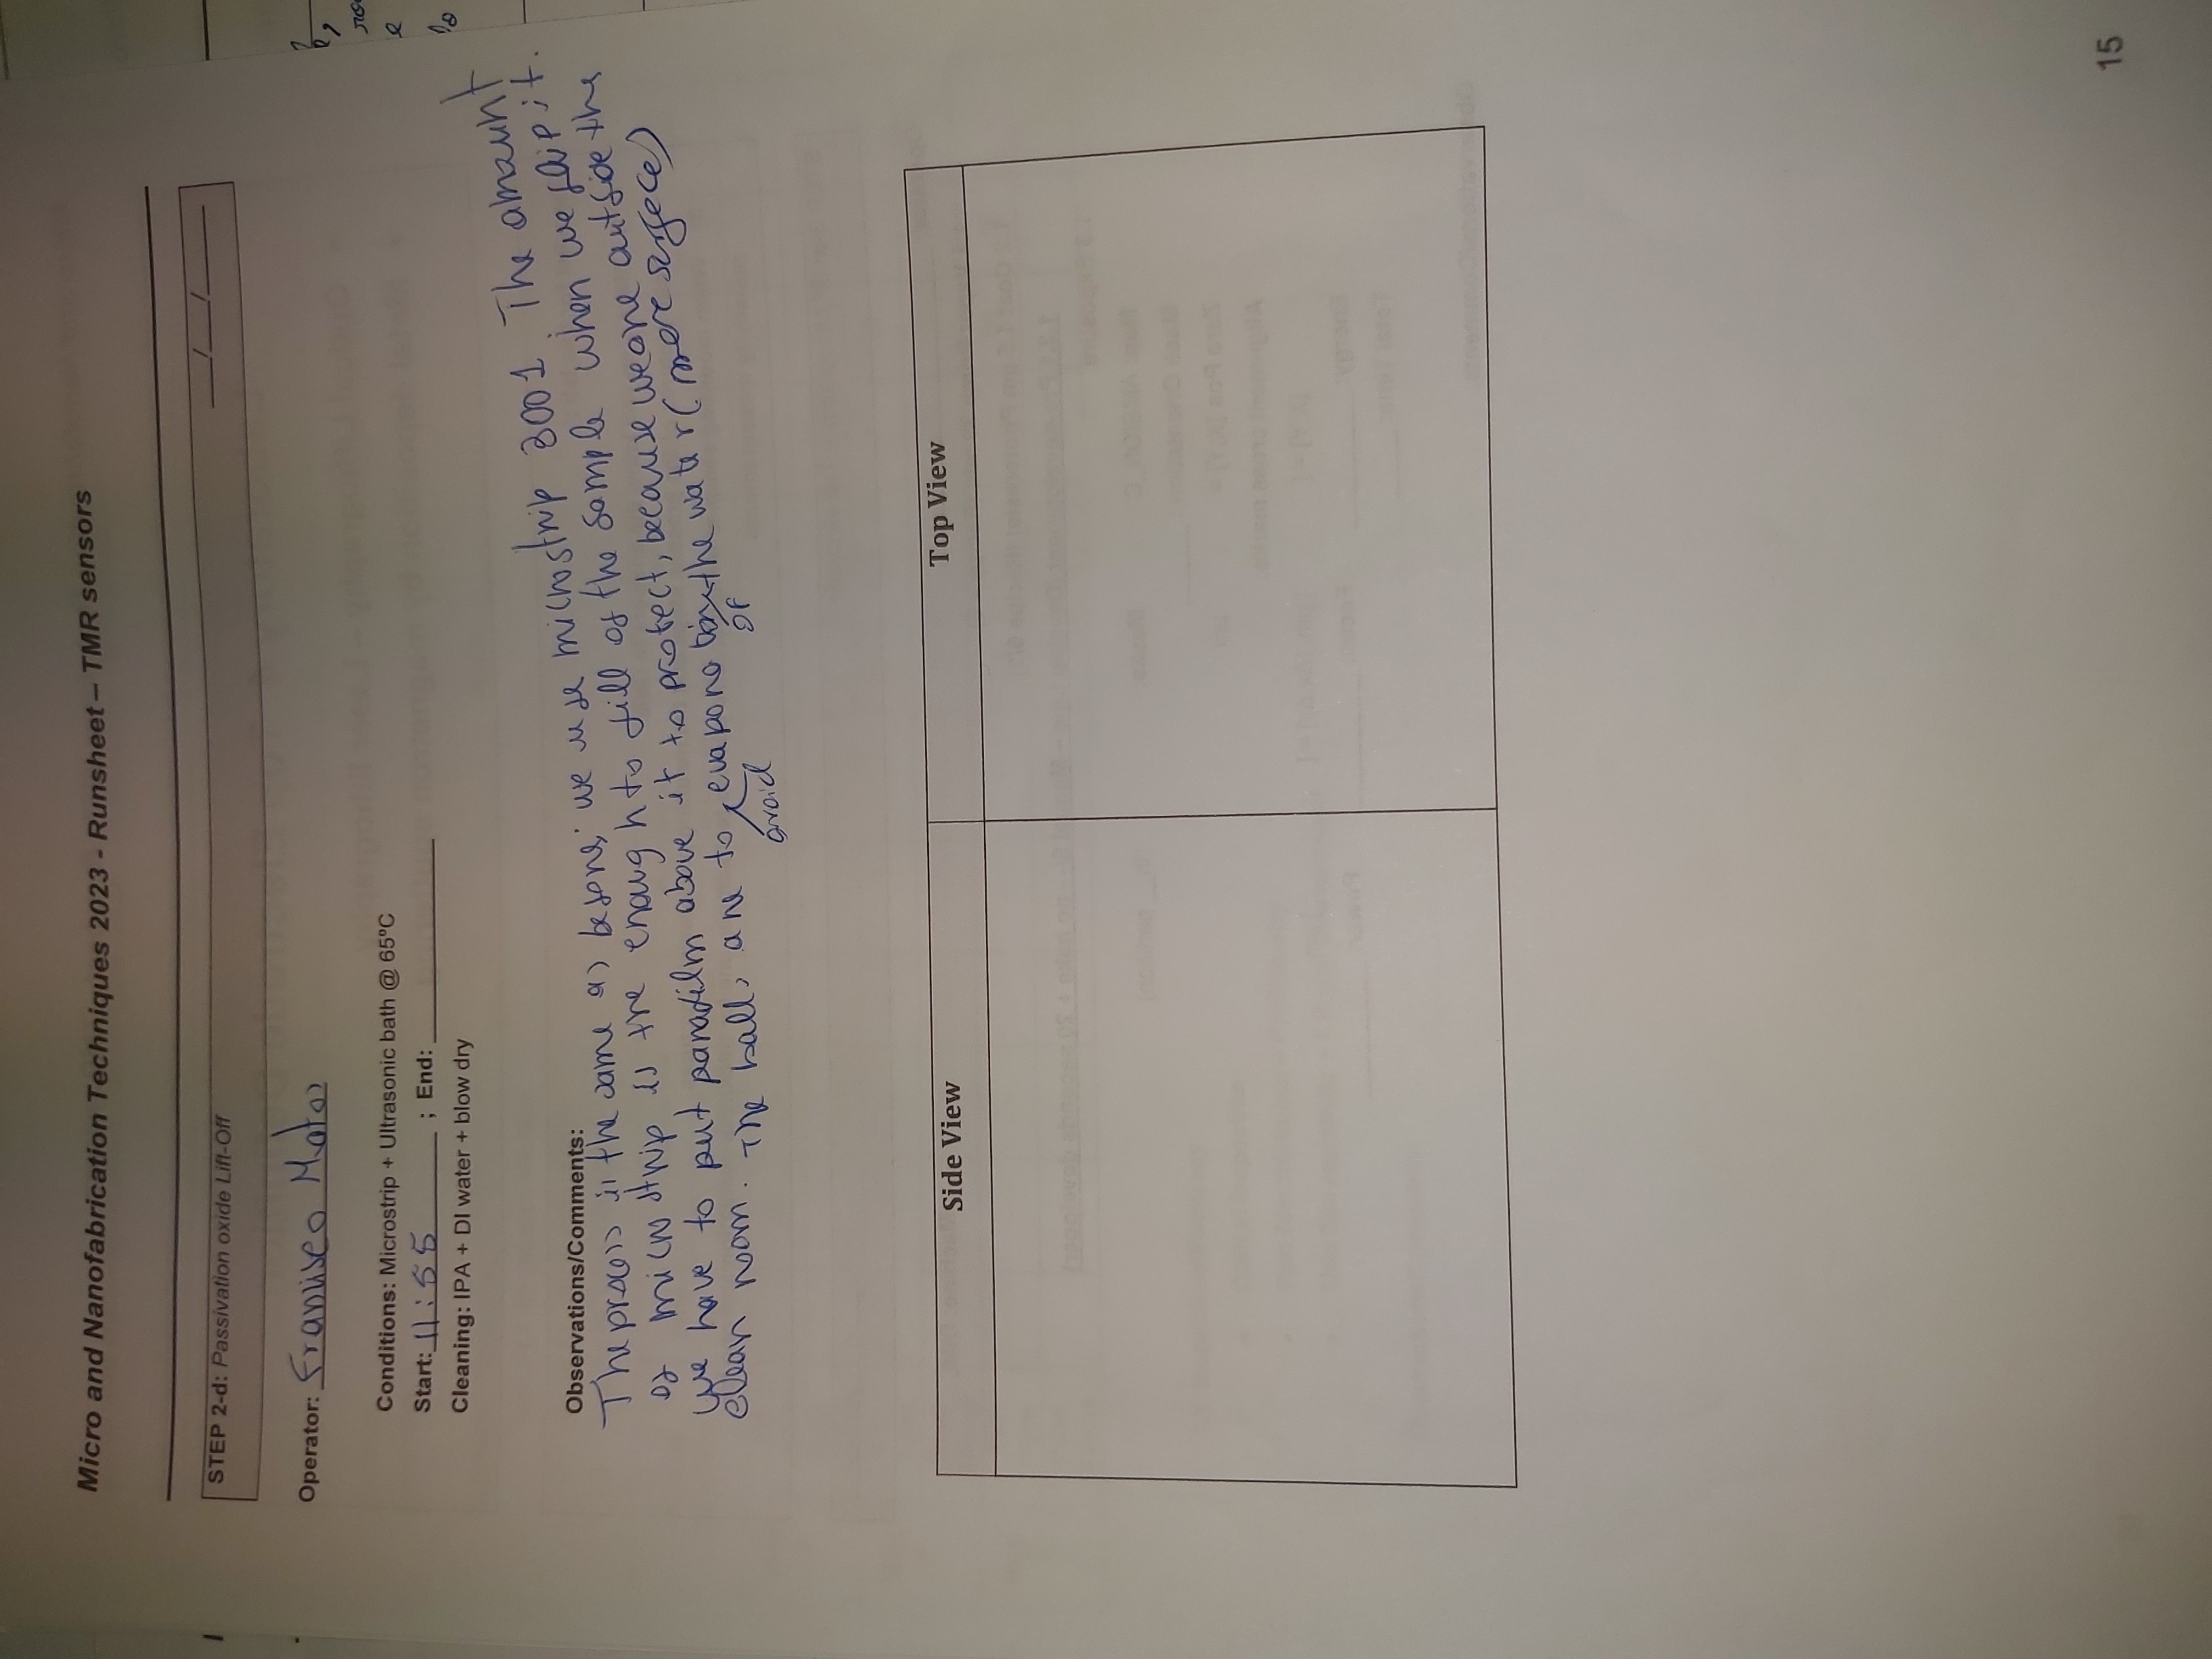 Micro and Nanofabrication Techniques 2023 - Runsheet – TMR sensors
STEP 2-d: Passivation oxide Lift-Off ___/___/______
Operator: Francisco Matos
Conditions: Microstrip + Ultrasonic bath @ 65ºC
Start: 11:55 ; End: ____________
Cleaning: IPA + DI water + blow dry
Observations/Comments:
The process is the same as before; we use microstrip 3001. The amount
of microstrip is the enough to fill of the sample when we flip it.
We have to put parafilm above it to protect, because we are outside the
clean room. The balls are to avoid evaporation of the water (more surface)
Side View Top View
15